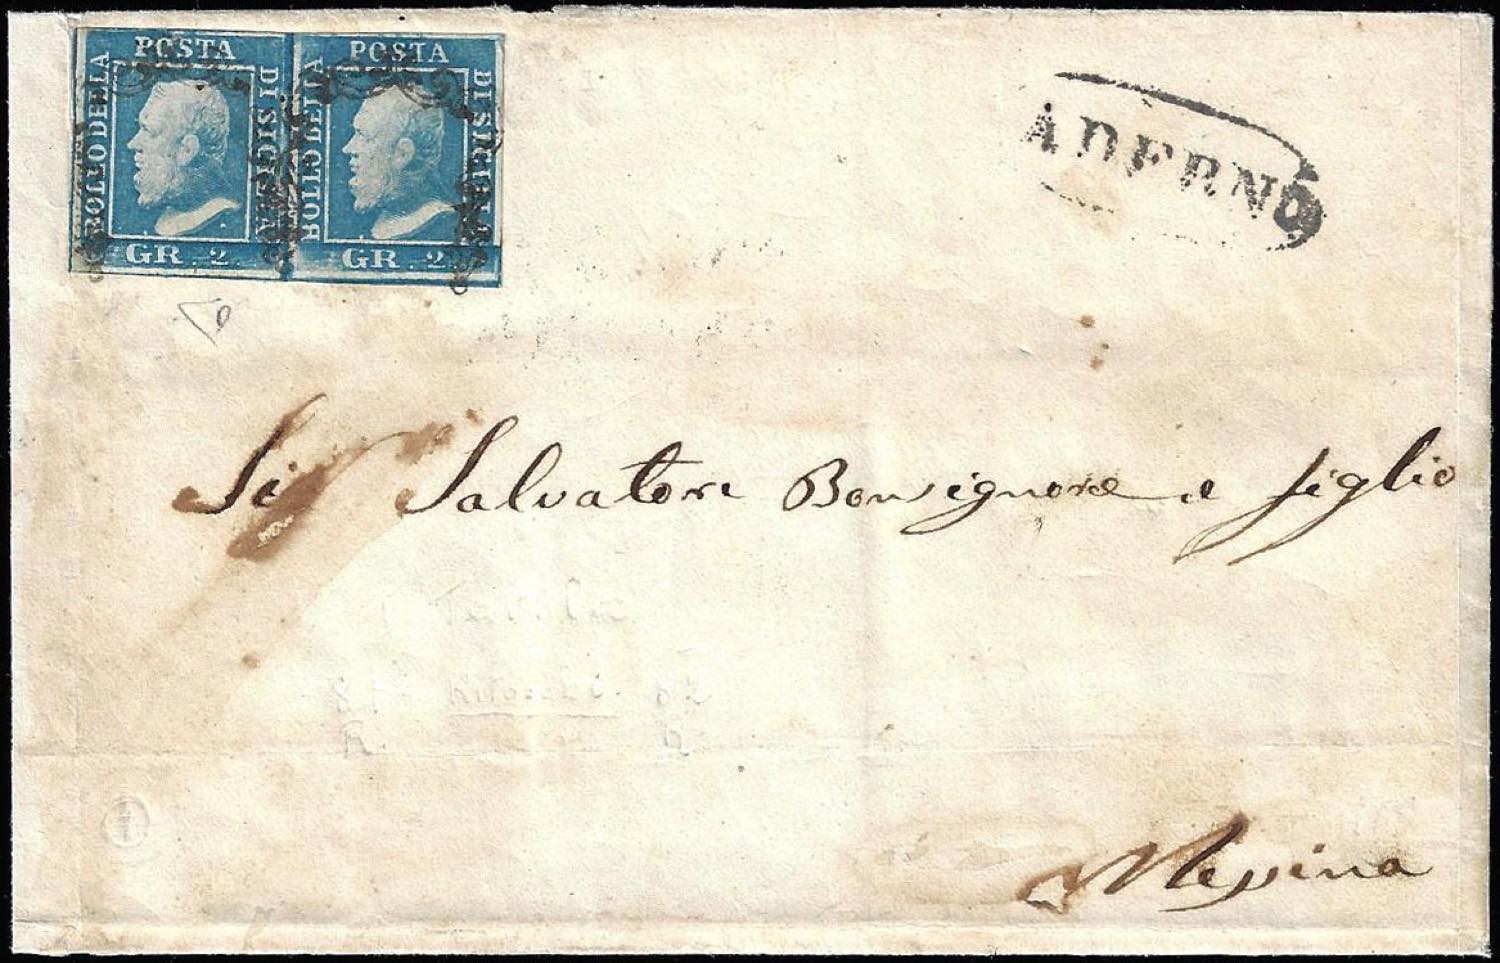 POSTA
BOLLO DELLA
DI SICILIA
GR. 2.
POSTA
BOLLO DELLA
DI SICILIA
GR. 2.
ADERNÒ
Si Salvatore Bonsignore e figlio
Messina